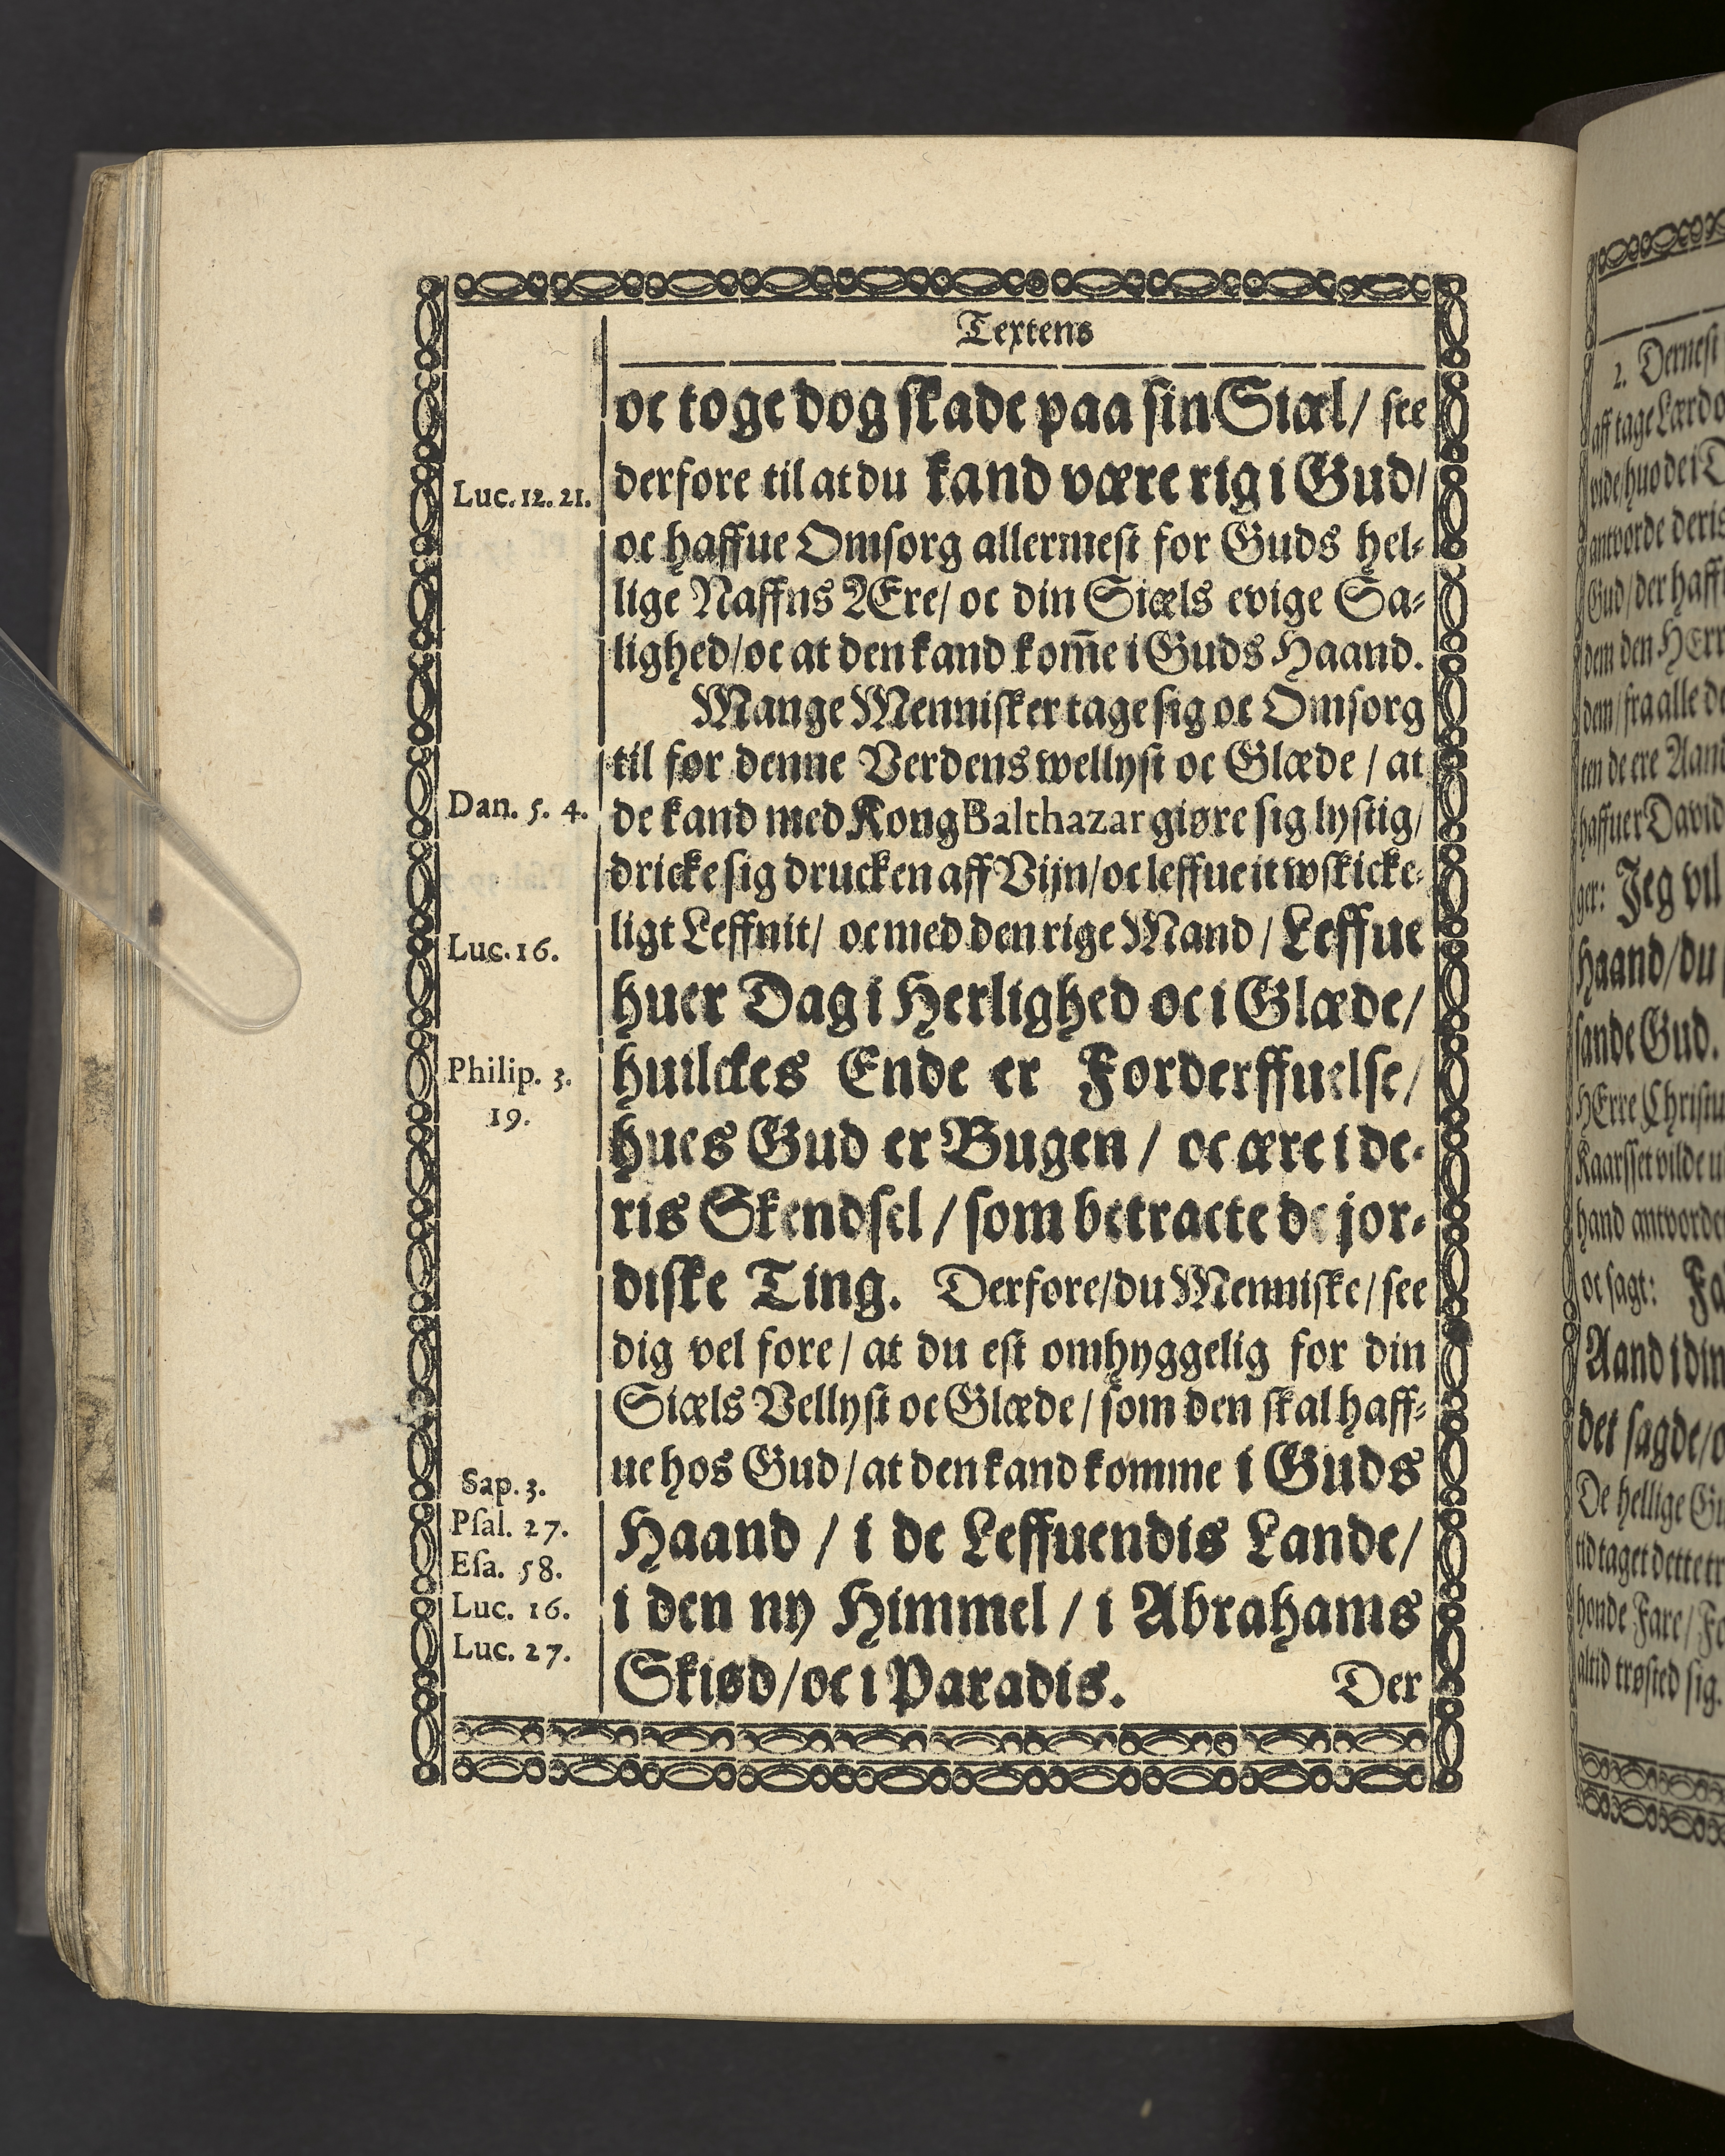 Textens
oc toge dog skade paa sin Siæl / see
derfore til at du kand være rig i Gud /
Luc. 12. 21.
oc haffue Omsorg allermest for Guds hel-
lige Naffns Ære / oc din Siæls evige Sa-
lighed / oc at den kand kom̃e i Guds Haand.
Mange Mennisker tage sig oc Omsorg
til før denne Verdens wellyst oc Glæde / at
de kand med Kong Balthazar giøre sig lystig /
Dan. 5. 4.
dricke sig drucken aff Vijn / oc leffue it wskicke-
ligt Leffnit / oc med den rige Mand / Leffue
Luc. 16.
huer Dag i Herlighed oc i Glæde /
huilckes Ende er Forderffuelse /
Philip. 3.
19.
hues Gud er Bugen / oc ære i de-
ris Skendsel / som betracte de jor-
diske Ting. Derfore / du Menniske / see
dig vel fore / at du est omhyggelig for din
Siæls Vellyst oc Glæde / som den skal haff-
ue hos Gud / at den kand komme i Guds
Sap. 3.
Psal. 27.
Haand / i de Leffuendis Lande /
Esa. 58.
i den ny Himmel / i Abrahams
Luc. 16.
Luc. 27.
Skiød / oc i Paradis.
Der
2. Dernest
aff tage Lærdo
vide / huo de i D
antvorde deris
Gud / der haff
dem den HErr
dem / fra alle de
ten de ere Aand
haffuer David
ger: Jeg vil
Haand / du
sande Gud.
HErre Christu
Kaarsset vilde u
hand antvorde
oc sagt: Fa
Aand i din
det sagde / o
De hellige Gu
tid taget dette tr
honde Fare / Fo
altid trøsted sig.